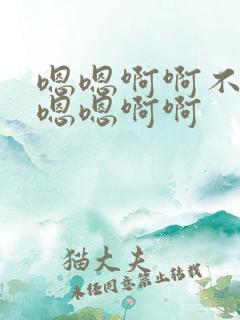 嗯嗯啊啊不
嗯嗯啊啊
猫大夫
未经同意禁止转载